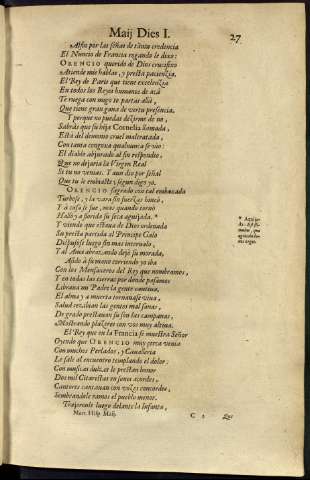 Maij Dies I.
27
Assi por las señas de tanta credencia
El Nuncio de Francia rogando le dixo:
ORENCIO querido de Dios crucifixo
Atiende mis hablas, y presta paciencia,
El Rey de Paris que tiene excelencia
En todos los Reyes humanos de acá
Te ruega con migo te partas allá,
Que tiene gran gana de verte presencia.
Y porque no puedas dezirme de no,
Sabrás que su hija Cornelia llamada,
Está del demonio cruel maltratada,
Con tanta congoxa qual nunca se vio:
El diablo abjurado al fin respondio,
Que no dexaria la Virgen Real
Si tu no venias. Y aun dio por señal
Que tu le embiaste, y segun digo yo.
ORENCIO sagrado con tal embaxada
Turbose, y la vara sin fuerças
A casa se fue, mas quando tornó
Halló ya florida su seca aguijada. *
Y viendo que estava de Dios ordenada
Su presta partida al Principe Galo
Dispusose luego sin mas intervalo,
Y tal Ama abraçando dexó su morada,
Asido à su mano corriendo yo iba
Con los Mensageros del Rey que nombramos,
Y en todas las tierras por donde passamos
Librava mi Padre la gente cautiva,
El alma y a muerta tornavase viva,
Salud recibian las gentes mal sanas,
De grado prestavan su son las campanas,
Mostrando plazeres con voz muy altiva.
El Rey que en la Francia se muestra Señor
Oyendo que ORENCIO muy cerca venia
Con muchos Perlados, y Cavalleria
Le sale al encuentro templando el dolor:
Con musicas dulces le prestan honor
Dos mil Citaristas en junta acordes,
Cantores cantavan con vozes concordes,
Sembrandole ramos el pueblo menor.
Traxeronle luego delante la Infanta,
* Aguijada
Mart. Hisp. Maij.
C 2
Que